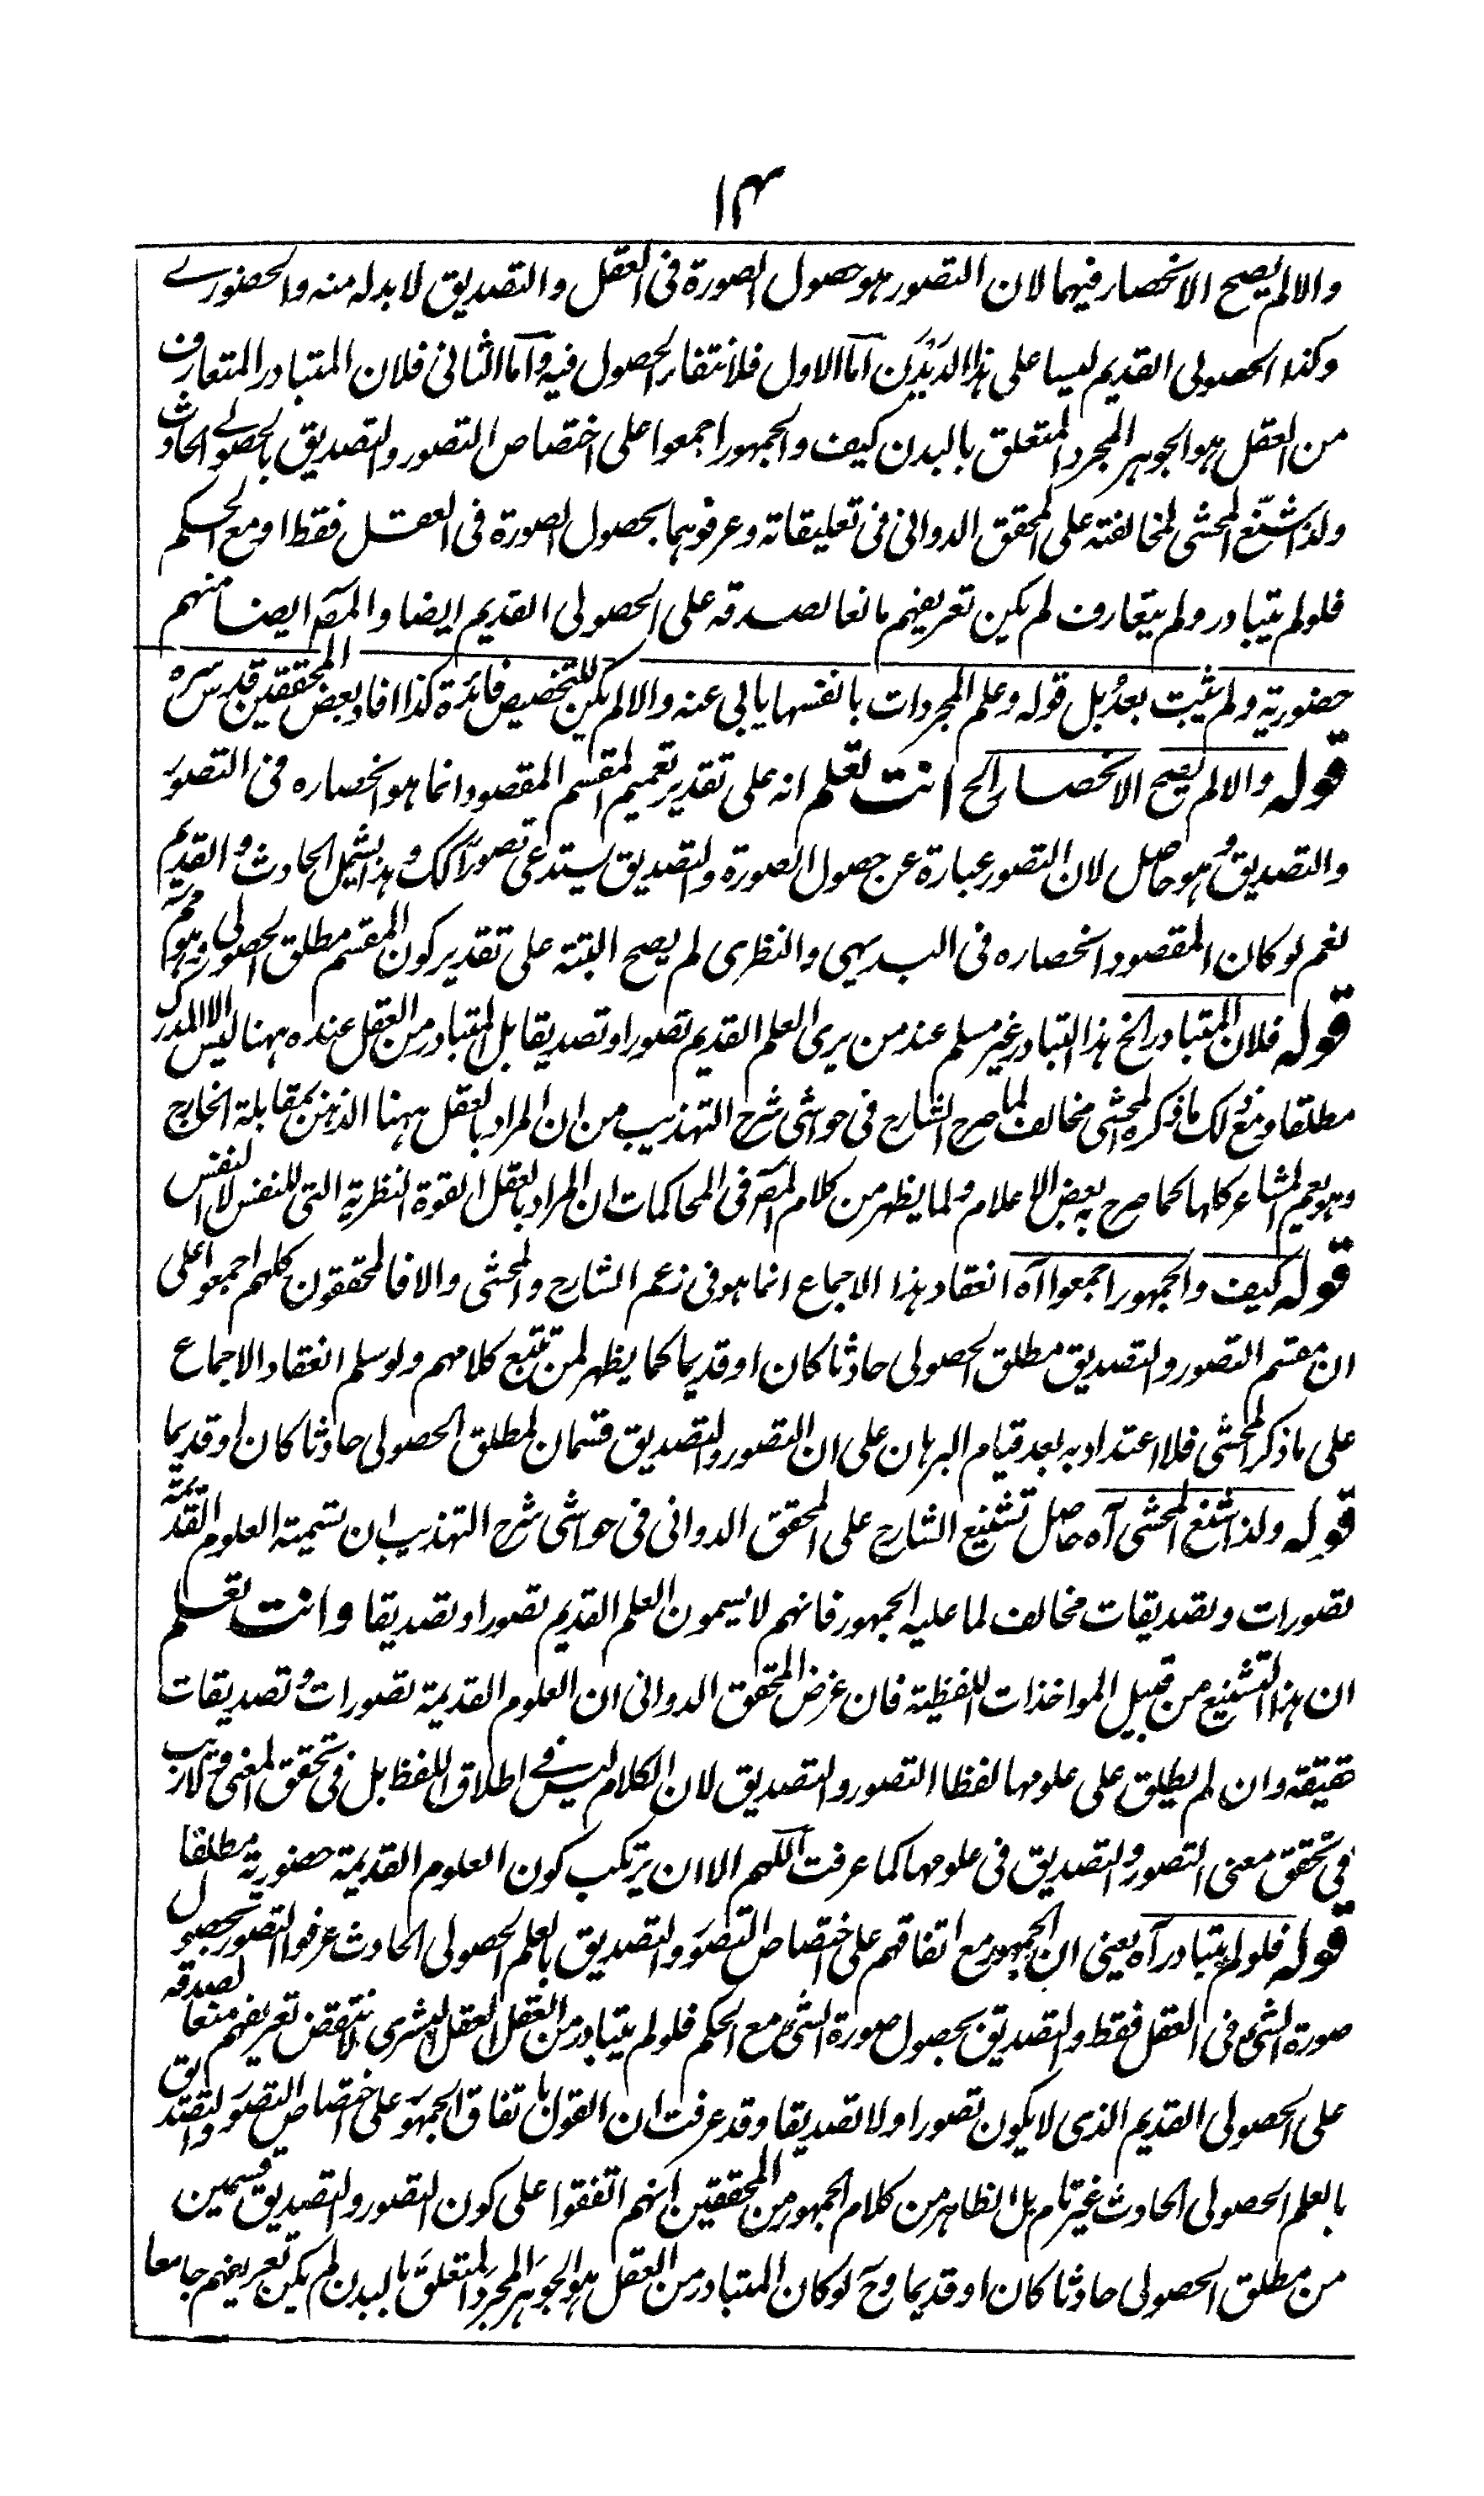 ١٤
والا لم يصح الانحصار فيهما لان التصور هو حصول الصورة فى العقل والتصديق لا بد له منه والحضورے
وكذا الحصولى القديم ليسا على هذا الديدن اما الاول فلانتفاء الحصول فيه واما الثانى فلان المتبادر المتعارف
من العقل هو الجوهر المجرد المتعلق بالبدن كيف والجمهور اجمعوا على اختصاص التصور والتصديق بالحصولے الحادث
ولذا شنع المحشى لمخالفته على المحقق الدوانى فى تعليقاته وعرفوهما بحصول الصورة فى العقل فقط او مع الحكم
فلو لم يتبادر ولم يتعارف لم يكن تعريفهم مانعا لصدقه على الحصولى القديم ايضا والمص ايضا منهم
حضورية ولم يثبت بعدُ بل قوله وعلم المجردات بانفسها يابى عنه والا لم يكن للتخصيص فائدة كذا افاد بعض المحققين قدس سره
قوله والا لم يصح الانحصار الخ انت تعلم انه على تقدير تعميم المقسم المقصود انما هو انحصاره فى التصور
والتصديق وهو حاصل لان التصور عبارة عن حصول الصورة والتصديق يستدعى تصورا كك وهذا يشمل الحادث والقديم
نعم لو كان المقصود انحصاره فى البديهى والنظرى لم يصح البتة على تقدير كون المقسم مطلق الحصولى
قوله فلان المتبادر الخ هذا التبادر غير مسلم عند من يرى العلم القديم تصورا وتصديقا بل المتبادر من العقل عنده ههنا ليس الا المدرك
مطلقا ومع ذلك ما ذكره المحشى مخالف لما صرح الشارح فى حواشى شرح التهذيب من ان المراد بالعقل ههنا الذهن بمقابلة الخارج
وهو يعم المشاعر كلها كما صرح به بعض الاعلام ولما يظهر من كلام المص فى المحاكمات ان المراد بالعقل القوة النظرية التى للنفس لا النفس
قوله كيف والجمهور اجمعوا آه انعقاد هذا الاجماع انما هو فى زعم الشارح والمحشى والا فالمحققون كلهم اجمعوا على
ان مقسم التصور والتصديق مطلق الحصولى حادثا كان او قديما كما يظهر لمن تتبع كلامهم ولو سلم انعقاد الاجماع
على ما ذكر المحشى فلا اعتداد به بعد قيام البرهان على ان التصور والتصديق قسمان لمطلق الحصولى حادثا كان او قديما
قوله ولذا شنع المحشى آه حاصل تشنيع الشارح على المحقق الدوانى فى حواشى شرح التهذيب ان تسمية العلوم القديمة
تصورات وتصديقات مخالف لما عليه الجمهور فانهم لا يسمون العلم القديم تصورا وتصديقا وانت تعلم
ان هذا التشنيع من قبيل المواخذات اللفظية فان غرض المحقق الدوانى ان العلوم القديمة تصورات وتصديقات
حقيقة وان لم يطلق على علومها لفظا التصور والتصديق لان الكلام ليس فے اطلاق اللفظ بل فى تحقق المعنى ولا ريب
فى تحقق معنى التصور والتصديق فى علومها كما عرفت اللهم الا ان يرتكب كون العلوم القديمة حضورية مطلقا
قوله فلو لم يتبادر آه يعنى ان الجمهور مع اتفاقهم على اختصاص التصور والتصديق بالعلم الحصولى الحادث عرفوا التصور بحصول
صورة الشئ فى العقل فقط والتصديق بحصول صورة الشئ مع الحكم فلو لم يتبادر من العقل العقل البشرى لانتقض تعريفهم منعا لصدقه
على الحصولى القديم الذى لا يكون تصورا ولا تصديقا وقد عرفت ان القول باتفاق الجمهور على اختصاص التصور والتصديق
بالعلم الحصولى الحادث غير تام بل الظاهر من كلام الجمهور من المحققين انهم اتفقوا على كون التصور والتصديق قسمين
من مطلق الحصولى حادثا كان او قديما وح لو كان المتبادر من العقل هو الجوهر المجرد المتعلق بالبدن لم يكن تعريفهم جامعا